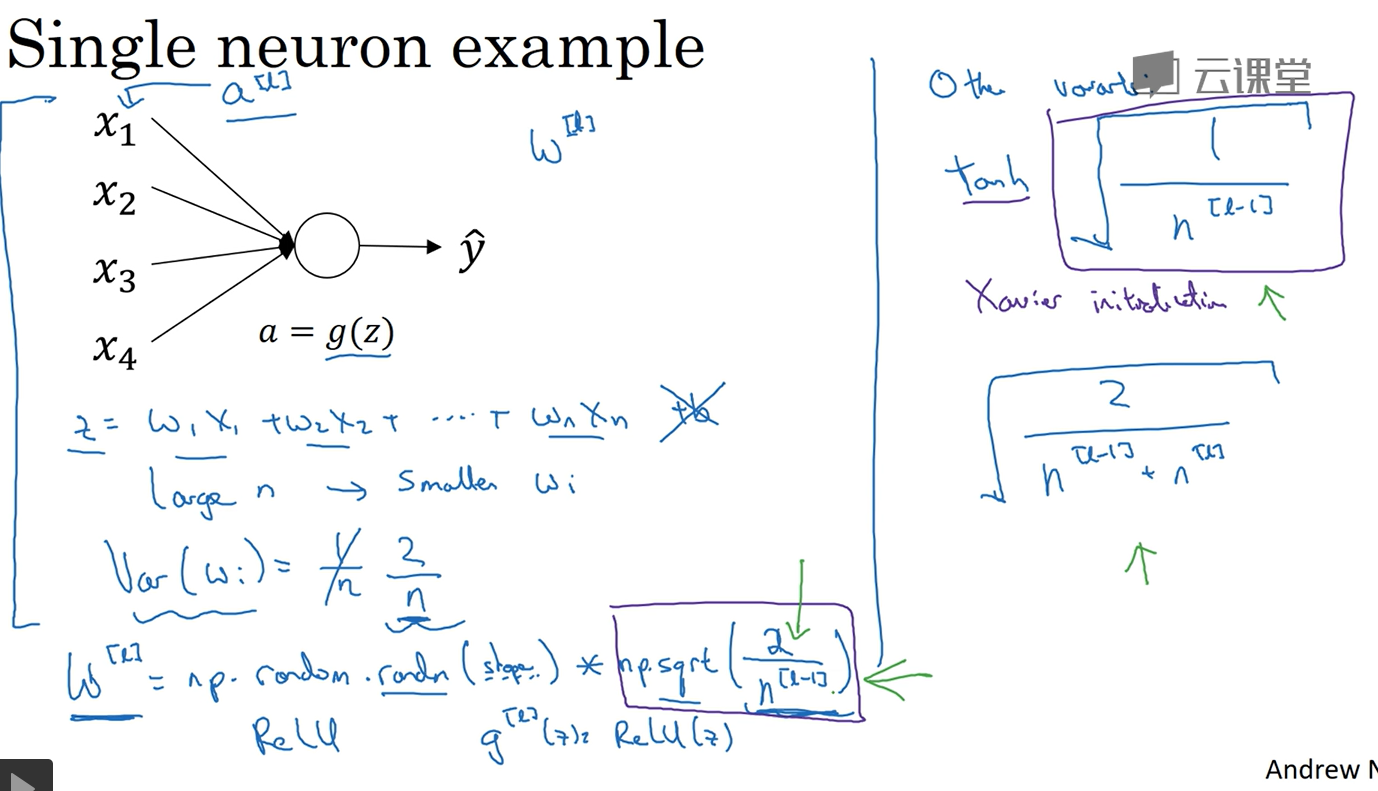 Single neuron example
a^[l]
x₁
x₂
x₃
x₄
ŷ
a = g(z)
w^[l]
z = w₁x₁ + w₂x₂ + ..... + wₙxₙ +b
Large n → Smaller wᵢ
Var(wᵢ) = 1/n 2/n
W^[l] = np.random.randn(shape) * np.sqrt(2/n^[l-1])
ReLU g^[l](z) = ReLU(z)
Other variants:
云课堂
tanh √(1/n^[l-1])
Xavier initialization ↑
√(2/(n^[l-1] + n^[l]))
↑
Andrew N